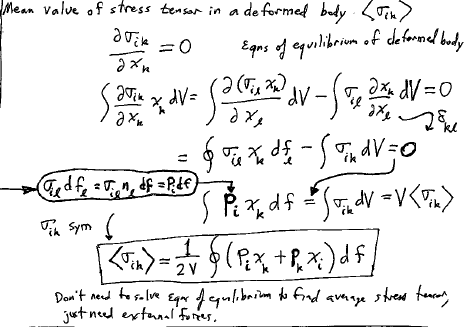 Mean value of stress tensor in a deformed body. <σik>
∂σik/∂xk = 0   Eqns of equilibrium of deformed body
∫ ∂σik/∂xk xk dV = ∫ ∂(σil xk)/∂xl dV − ∫ σil ∂xk/∂xl dV = 0
δkl
= ∮ σil xk dfl − ∫ σik dV = 0
σil dfl = σil nl df = Pi df
∫ Pi xk df = ∫ σik dV = V<σik>
σik sym
<σik> = 1/2V ∮ (Pi xk + Pk xi) df
Don't need to solve Eqns of equilibrium to find average stress tensor,
just need external forces.